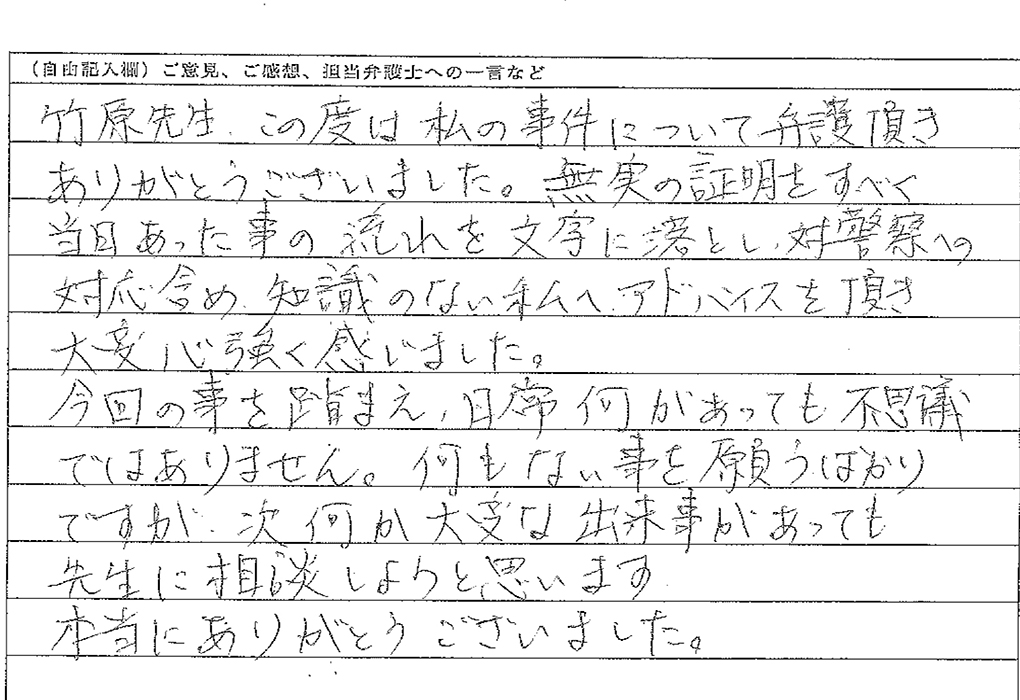 （自由記入欄）ご意見、ご感想、担当弁護士への一言など
竹原先生、この度は私の事件について弁護頂き
ありがとうございました。無実の証明をすべく
当日あった事の流れを文字に落とし、対警察への
対応含め、知識のない私へ、アドバイスを頂き
大変心強く感じました。
今回の事を踏まえ、日常何があっても不思議
ではありません。何もない事を願うばかり
ですが、次何か大変な出来事があっても
先生に相談しようと思います
本当にありがとうございました。